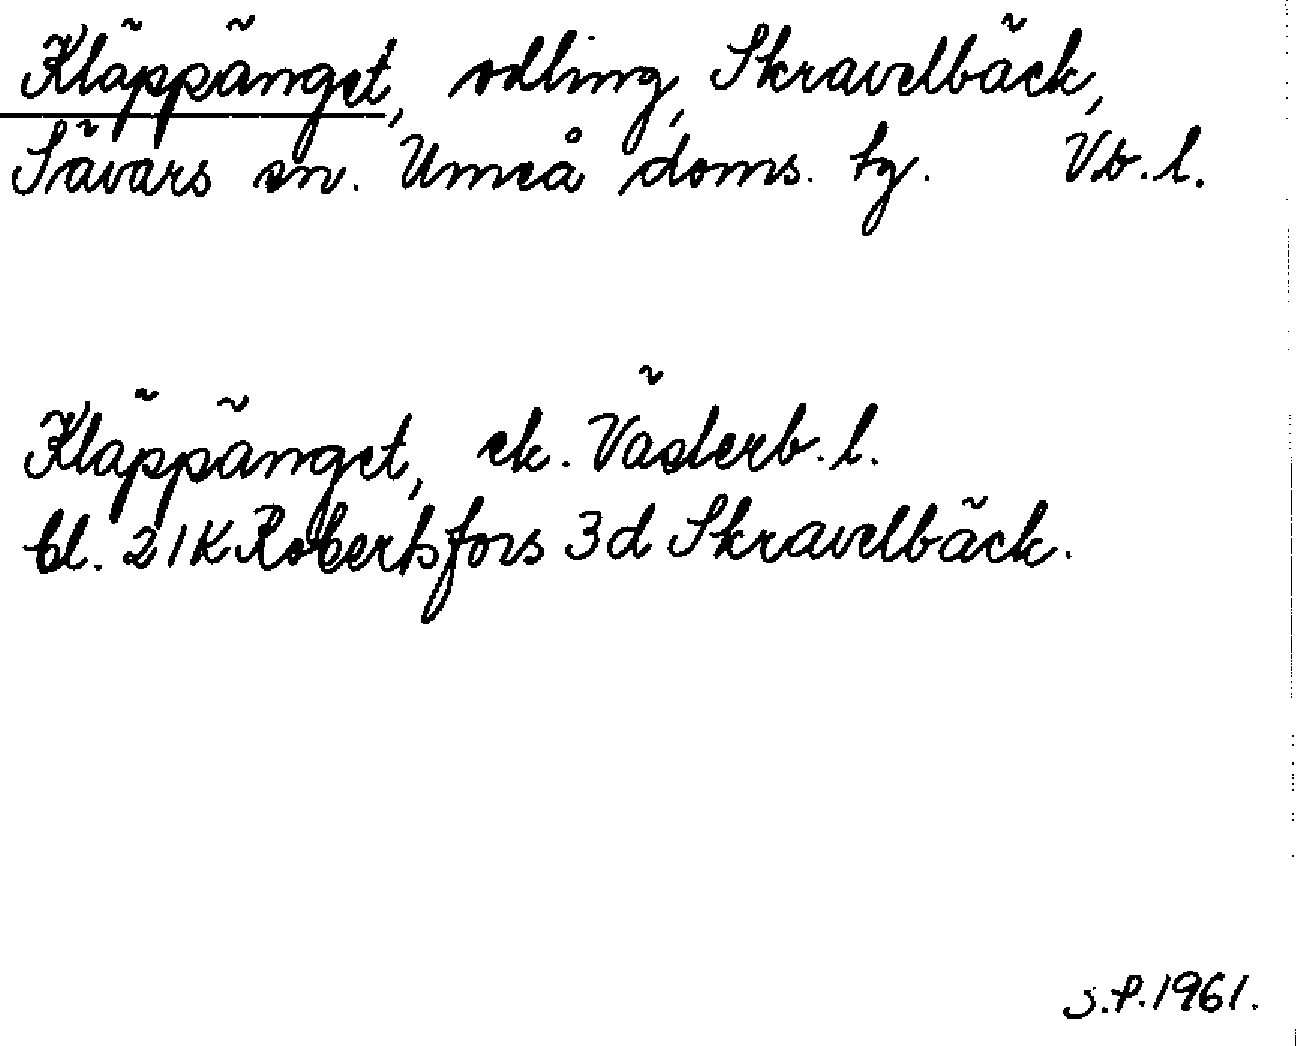 Kläppänget, odling, Skravelbäck,
Sävars sn. Umeå doms. tg. Vb.l.
Kläppänget, ek. Väderb.l.
bl. 21K Robertsfors 3d Skravelbäck.
S.P. 1961.